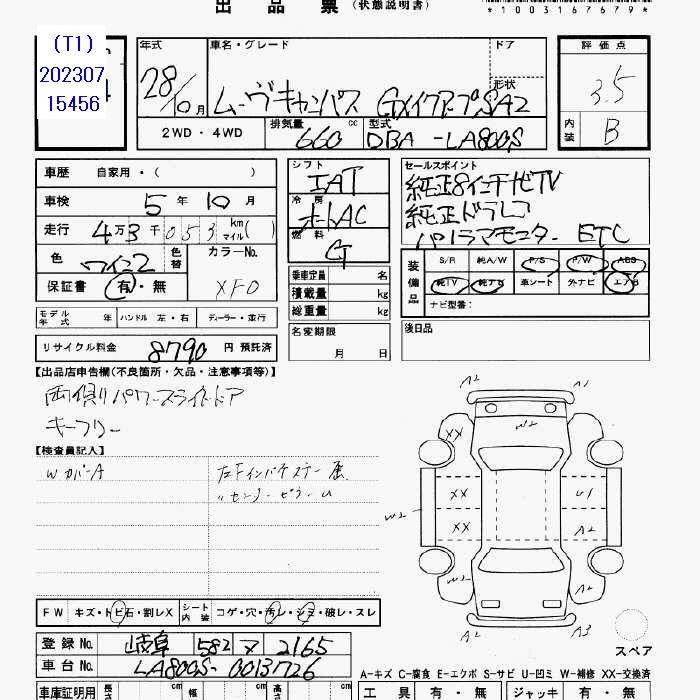 出品票（状態説明書）
*1003167679*
(T1)
202307
15456
年式 28/10月
車名・グレード ムーヴキャンバス GメイクアップSA2
ドア
形状
評価点 3.5
内装 B
2WD・4WD
排気量 660 cc
型式 DBA-LA800S
車歴 自家用・( )
車検 5年10月
走行 4万3千053 km マイル( )
色 ワイン2 色替
カラーNo. XF0
保証書 有・無
シフト IAT
冷房 オートAC
燃料 G
乗車定員 名
積載量 kg
総重量 kg
名変期限
月 日
セールスポイント
純正8インチナビTV
純正ドラレコ
パノラマモニター ETC
装備品
S/R 純A/W P/S P/W ABS
純TV 純ナビ 革シート 外ナビ エアB
ナビ型番：
後日品
モデル年式 年 ハンドル 左・右 ディーラー・並行
リサイクル料金 8790 円 預託済
【出品店申告欄(不良箇所・欠品・注意事項等)】
両側パワースライドドア
キーフリー
【検査員記入】
WカバーA
左Fインパネステー展
〃センターピラーU
A2 A1
W2
XX
XX U1
XX A2
W2
W2 A2
A2 A3
スペア
FW キズ・トビ石・割レX シート内装 コゲ・穴・汚レ・シミ・破レ・スレ
登録No. 岐阜 582 ヌ 2165
車台No. LA800S-0013726
A-キズ C-腐食 E-エクボ S-サビ U-凹ミ W-補修 XX-交換済
車庫証明用 長さ cm 幅 cm 高さ cm
工具 有・無 ジャッキ 有・無